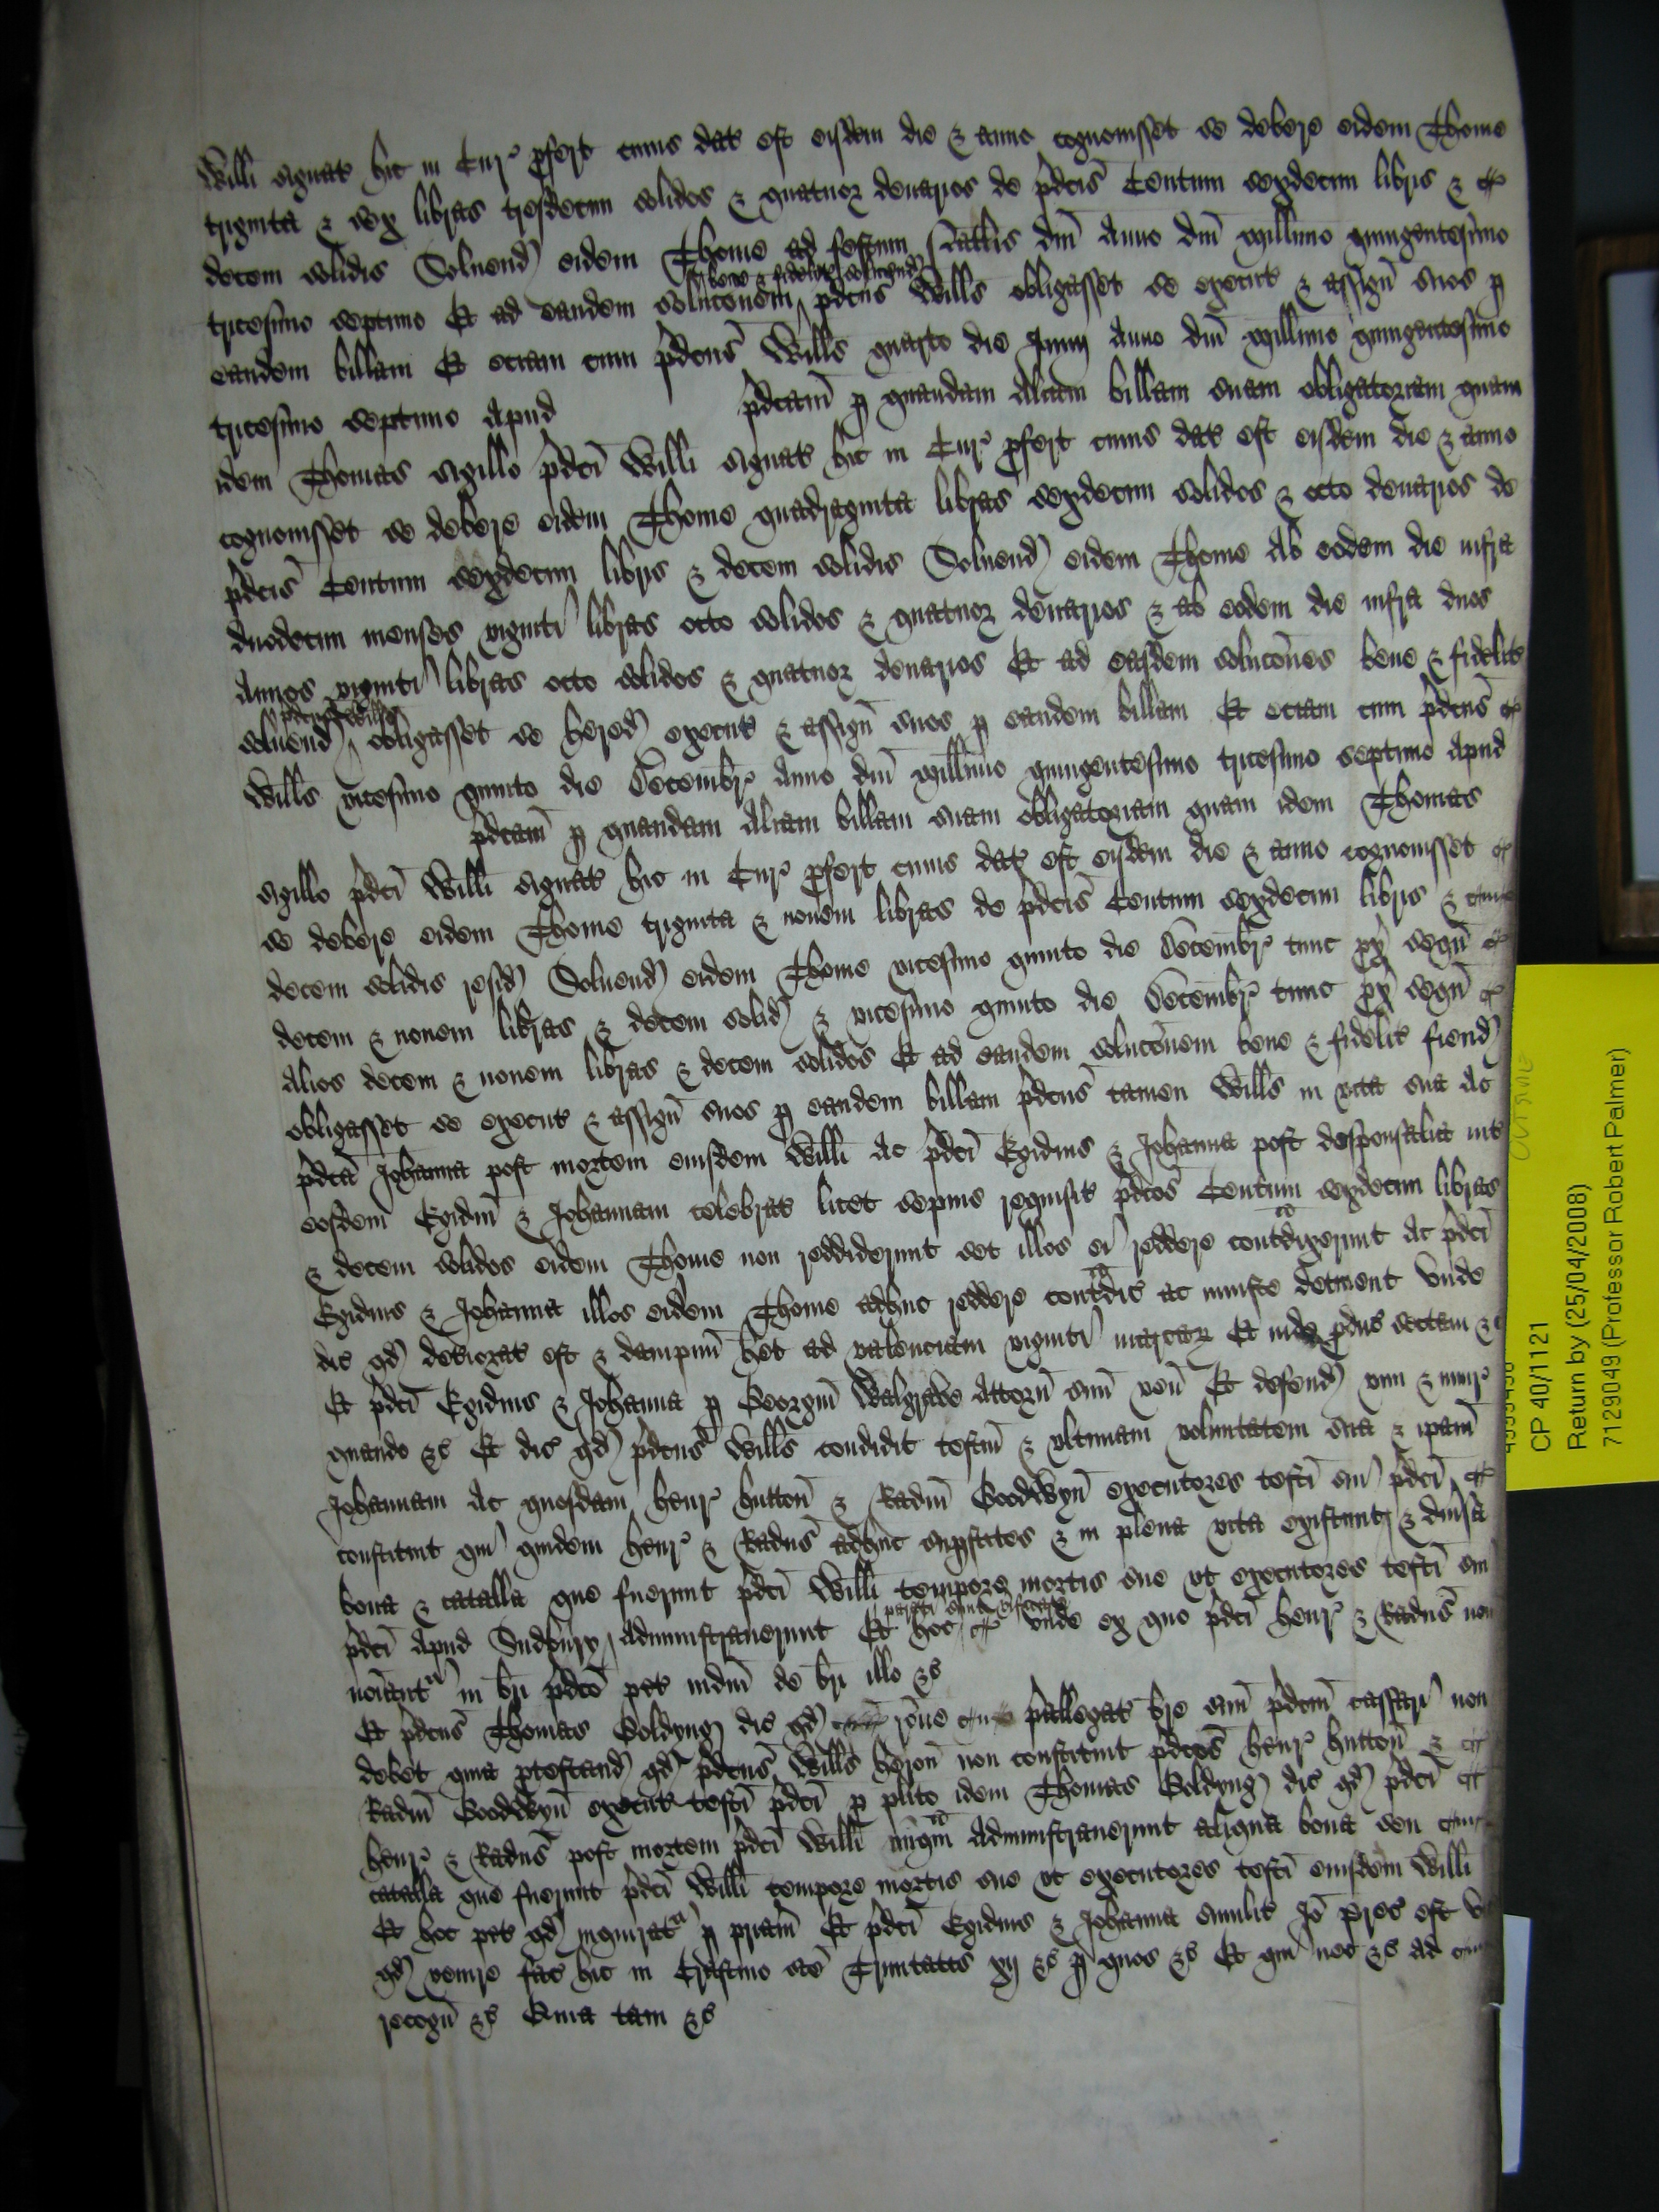 Willi signat hic in Cur profert cuius dat est eisdem die & anno cognovisset se debere eidem Thome
triginta & sex libras tresdecim solidos & quatuor denarios de pdcis Centum sexdecim libris &
decem solidis Solvend eidem Thome ad festum Natlis dni Anno dni millimo quingentesimo
bene & fidelit solvend
tricesimo septimo Et ad eandem solucoem pdcus Wills obligasset se execut & assign suos p
eandem billam Et eciam cum pdcus Wills quarto die Junij Anno dni millimo quingentesimo
tricesimo septimo Apud pdcam p quandam aliam billam suam obligatoriam quam
idem Thomas sigillo pdci Willi signat hic in Cur pfert cuius dat est eisdem die & anno
cognovisset se debere eidem Thome quadraginta libras sexdecim solidos & octo denarios de
pdcis Centum sexdecim libris & decem solidis Solvend eidem Thome Ab eodem die infra
duodecim menses viginti libras octo solidos & quatuor denarios & ab eodem die infra duos
Annos viginti libras octo solidos & quatuor denarios Et ad easdem solucoes bene & fidelit
pdcus Wills
solvend obligasset se hered execut & assign suos p eandem billam Et eciam cum pdcus
Wills vicesimo quinto die Decembr Anno dni millimo quingentesimo tricesimo septimo Apud
pdcam p quandam Aliam billam suam obligatoriam quam idem Thomas
sigillo pdci Willi signat hic in Cur pfert cuius dat est eisdem die & anno cognovisset
se debere eidem Thome triginta & novem libras de pdcis Centum sexdecim libris &
decem solidis resid Solvend eidem Thome vicesimo quinto die Decembr tunc px sequ
decem & novem libras & decem solid & vicesimo quinto die Decembr tunc px sequ
Alios decem & novem libras & decem solidos Et ad eandem solucoem bene & fidelit fiend
obligasset se execut & assign suos p eandem billam pdcus tamen Wills in vita sua Ac
pdca Johanna post mortem eiusdem Willi Ac pdci Egidius & Johanna post desponsalia int
eosdem Egidm & Johannam celebrat licet sepius requisit pdcos Centum sexdecim libras
& decem solidos eidem Thome non reddiderunt set illos ei reddere contadixerunt Ac pdci
Egidius & Johanna illos eidem Thome adhuc reddere contadic ac iniuste detinent Unde
dic qd deteriorat est & dampnu het ad valenciam viginti marcar Et inde pduc sectam &c
Et pdci Egidius & Johanna p Georgiu Walgrave Attorn suu ven Et defend vim & iniur
quando &c Et dic qd pdcus Wills condidit testm & ultimam voluntatem sua & ipam
Johannam Ac quosdam Henr Hutton & Radm Goodwyn executores testi sui pdci
constituit qui quidem Henr & Radus adhuc supstites & in plena vita existunt & divsa
bona & catalla que fuerunt pdci Willi tempore mortis sue ut executores testi sui
parati sunt vificare
pdci Apud Sudbury Administraverunt Et hoc Unde ex quo pdci Henr & Radus non
noiant in bri pdco pet iudm de bri illo &c
Et pdcus Thomas Goldyng dic qd rone pallegat bre suu pdcm cassari non
debet quia ptestand qd pdcus Wills Heron non constituit pdcos Henr Hutton &
Radm Goodwyn execut testi pdci p plito idem Thomas Goldyng dic qd pdci
Henr & Radus post mortem pdci Willi nuqm Administraverunt aliqua bona seu
catalla que fuerunt pdci Willi tempore mortis sue ut executores testi eiusdem Willi
Et hoc pet qd inquirat p priam Et pdci Egidius & Johanna similit Jo prec est v
qd venire fac hic in Crastino sce Trinitatis xij &c p quos &c Et qui nec &c ad
recogn &c Quia tam &c
CP 40/1121
Return by (25/04/2008)
7129049 (Professor Robert Palmer)